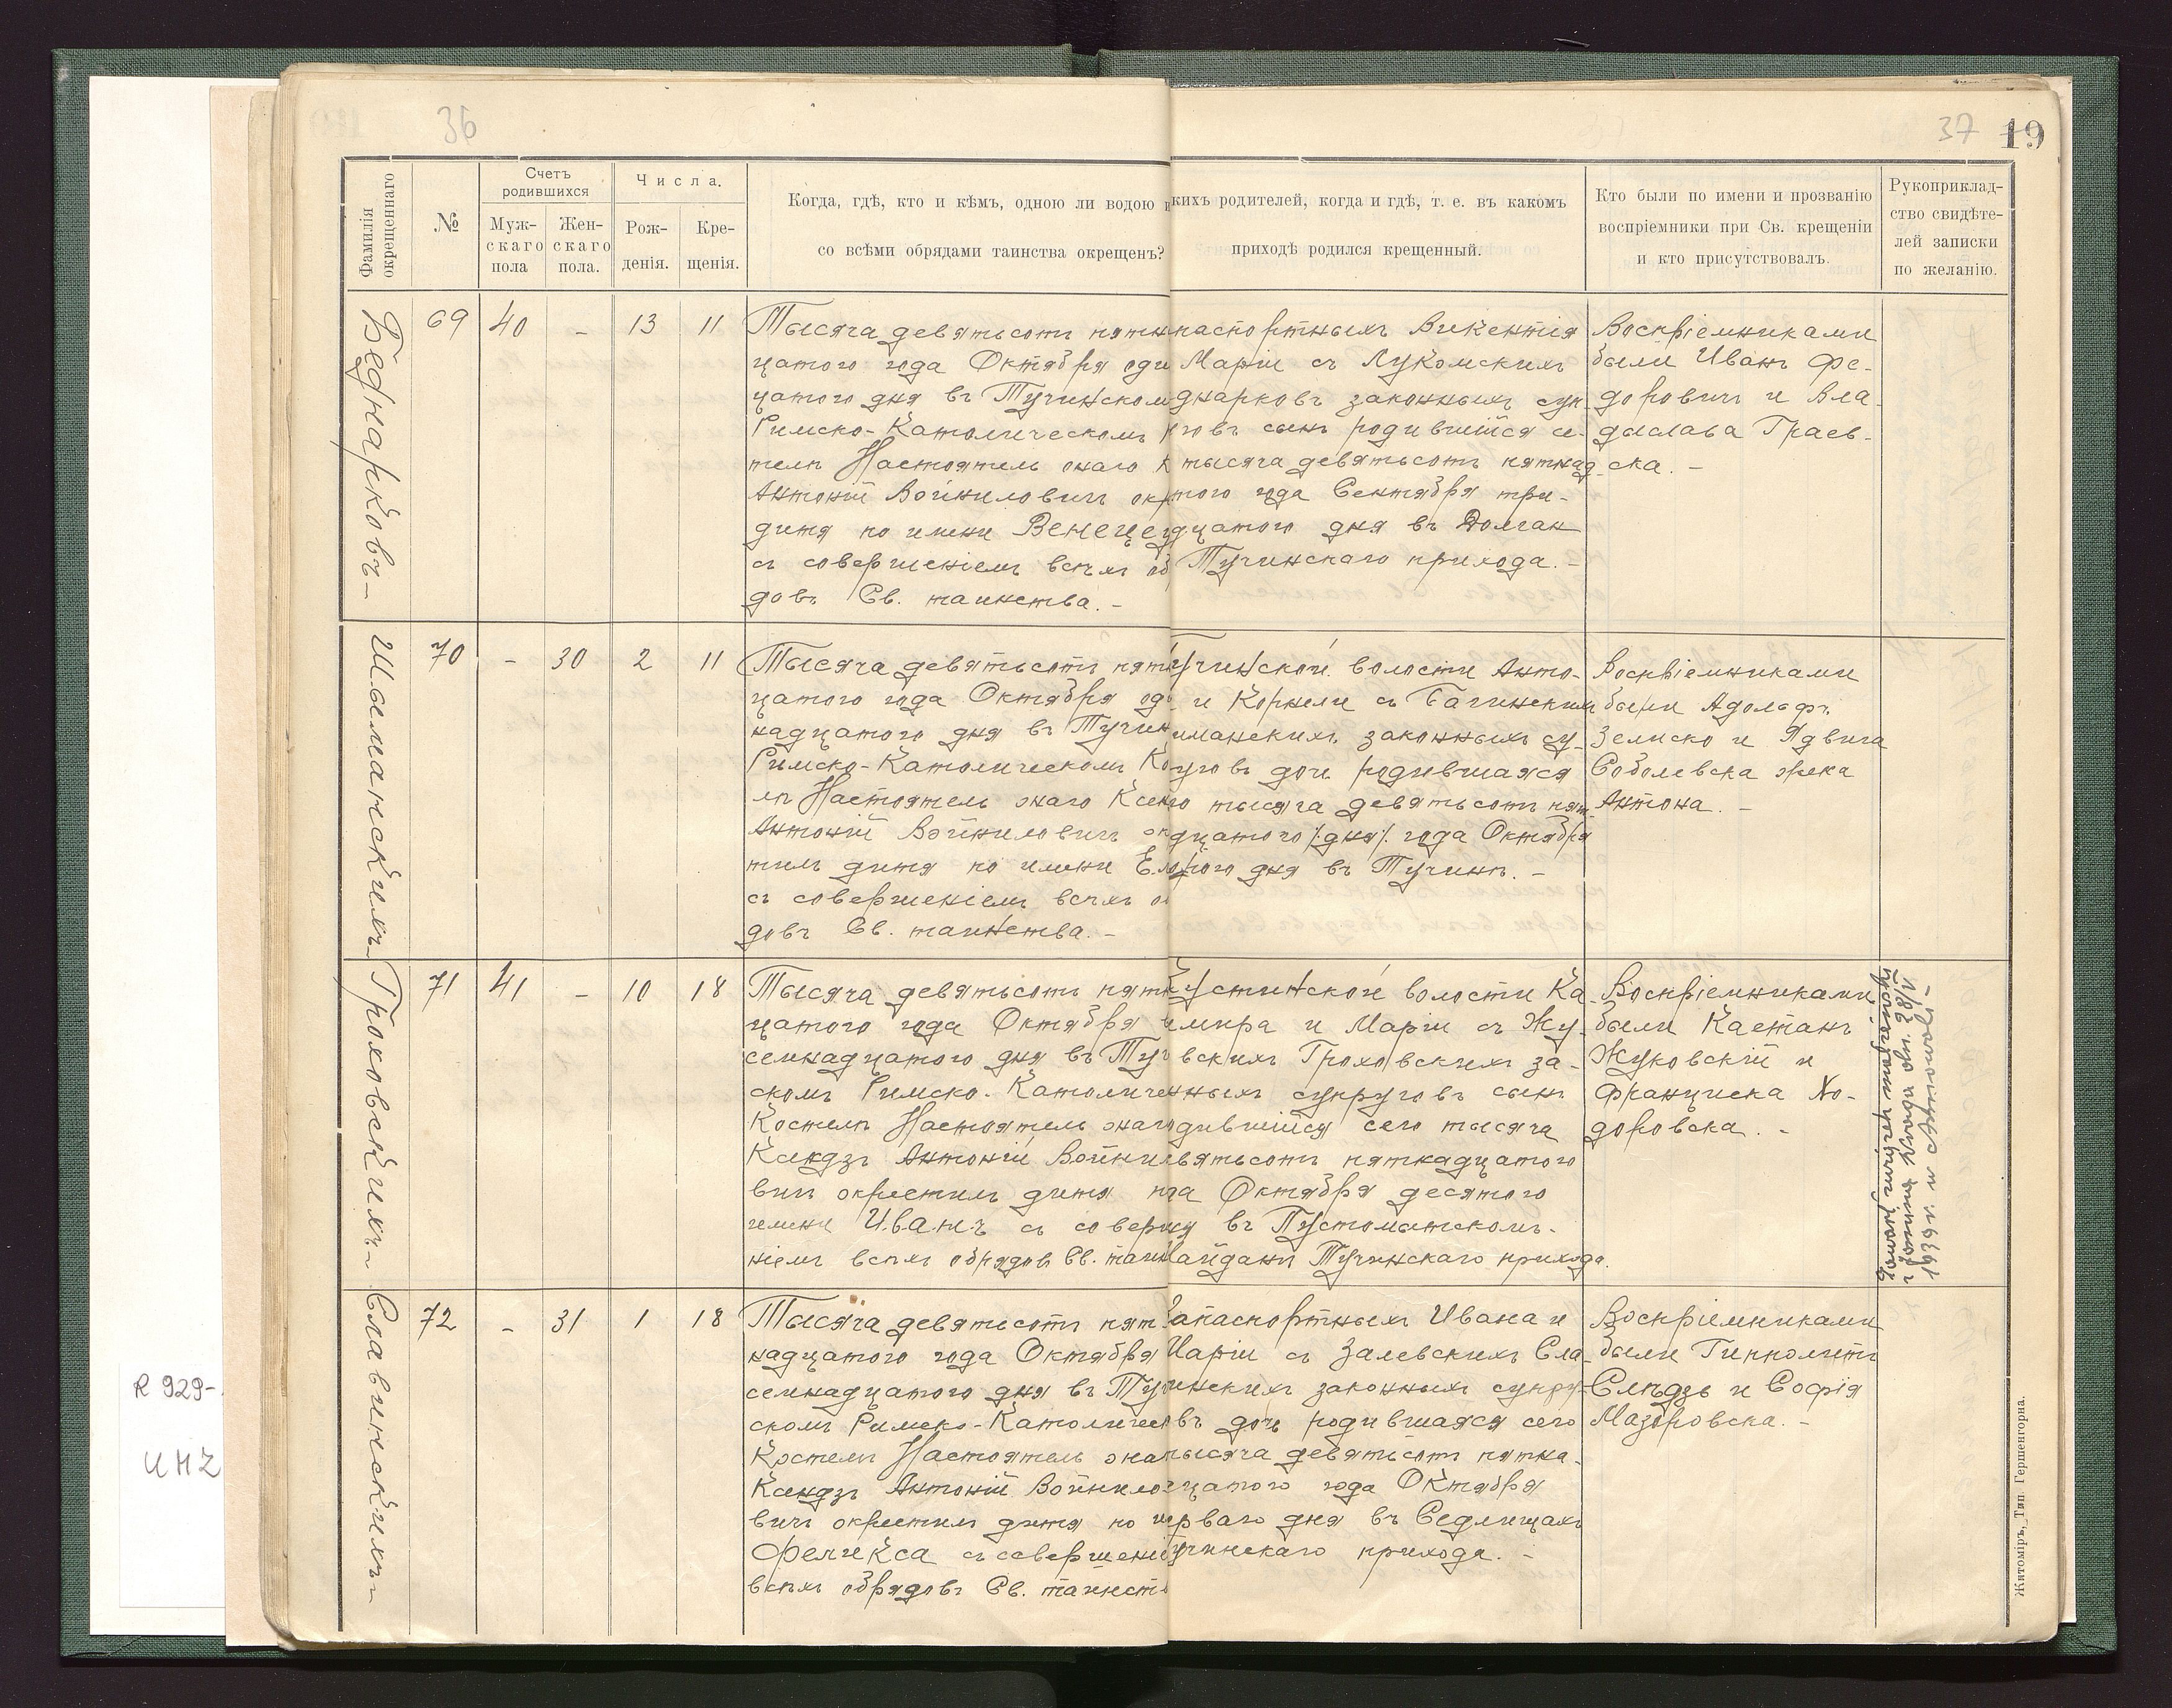 36
37 19
Фамилія окрещеннаго
№
Счетъ родившихся
Муж-
скаго
пола
Жен-
скаго
пола.
Числа.
Рож-
денія.
Кре-
щенія.
Когда, гдѣ, кто и кѣмъ, одною ли водою и
со всѣми обрядами таинства окрещенъ?
кихъ родителей, когда и гдѣ, т. е. въ какомъ
приходѣ родился крещенный.
Кто были по имени и прозванію
воспріемники при Св. крещеніи
и кто присутствовалъ.
Рукоприклад-
ство свидѣте-
лей записки
по желанію.
Беднарковъ-
69 40 - 13 11
Тысяча девятьсотъ пятн
цатого года Октября оди
цатого дня въ Тучинском
Римско-Католическомъ К
телѣ Настоятель онаго К
Антоній Войниловичъ окр
дитя по имени Венецез
съ совершеніемъ всѣхъ об
довъ Св. таинства.-
паспортныхъ Викентія
Маріи съ Лукомскихъ
днарковъ законныхъ суп-
говъ сынъ родившійся се-
тысяча девятьсотъ пятнад-
того года Сентября три-
дцатого дня въ Долган
Тучинскаго прихода.-
Воспріемниками
были Иванъ Фе-
доровичъ и Вла-
дыслава Граев-
ска.-
Шыманскихъ-
70 - 30 2 11
Тысяча девятьсотъ пятн
цатого года Октября од
надцатого дня въ Тучин
Римско-Католическомъ Ко
лѣ Настоятель онаго Ксен
Антоній Войниловичъ ок
тилъ дитя по имени Ел
съ совершеніемъ всѣхъ о
довъ Св. таинства.-
учинской волости Анто-
и Корнели съ Багинскихъ
иманскихъ законныхъ су-
уговъ дочь родившаяся
го тысяча девятьсотъ пят-
дцатого /:дня/: года Октября
орого дня въ Тучинѣ.-
Воспріемниками
были Адольфъ
Зелиско и Ядвига
Соболевска жена
Антона.-
Гроховскихъ-
71 41 - 10 18
Тысяча девятьсотъ пятн
цатого года Октября
семнадцатого дня въ Туч
скомъ Римско-Католиче
Костелѣ Настоятель онаго
Ксендзъ Антоній Войнил
вичъ окрестилъ дитя п
имени Иванъ съ соверш
ніемъ всѣхъ обрядовъ Св. таин
устинской волости Ка-
имира и Маріи съ Жу-
вскихъ Гроховскихъ за-
нныхъ супруговъ сынъ
дившійся сего тысяча
вятьсотъ пятнадцатого
да Октября десятого
ня въ Пустомытскомъ-
айданѣ Тучинскаго прихода.
Воспріемниками
были Каетанъ
Жуковскій и
Франциска Хо-
доровска.-
Славинскихъ-
72 - 31 1 18
Тысяча девятьсотъ пят
надцатого года Октября
семнадцатого дня въ Туч
скомъ Римско-Католичес
Костелѣ Настоятель онаг
Ксендзъ Антоній Войнило
вичъ окрестилъ дитя по и
Феликса съ совершені
всѣхъ обрядовъ Св. таинст
апаспортныхъ Ивана и
Маріи съ Залевскихъ Сла-
инскихъ законныхъ супру-
въ дочь родившаяся сего
тысяча девятьсотъ пятна-
цатого года Октября
ерваго дня въ Седлищахъ
учинскаго прихода.-
Воспріемниками
были Гипполитъ
Слѣдзь и Софія
Мазоровска.-
Житоміръ, Тип. Гершенгорна.
R 929-
UHZ